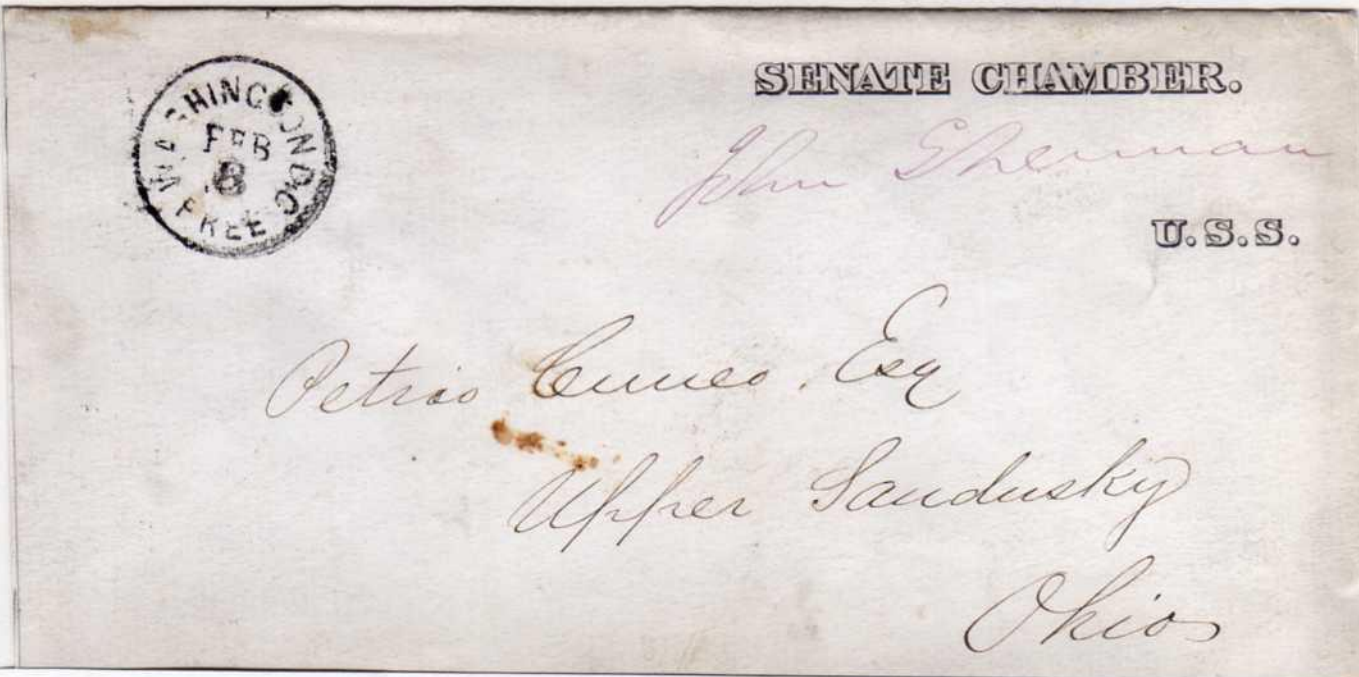 WASHINGTON D.C.
FEB
8
FREE
SENATE CHAMBER.
John Sherman
U.S.S.
Petrio Cuneo, Esq
Upper Sandusky
Ohio